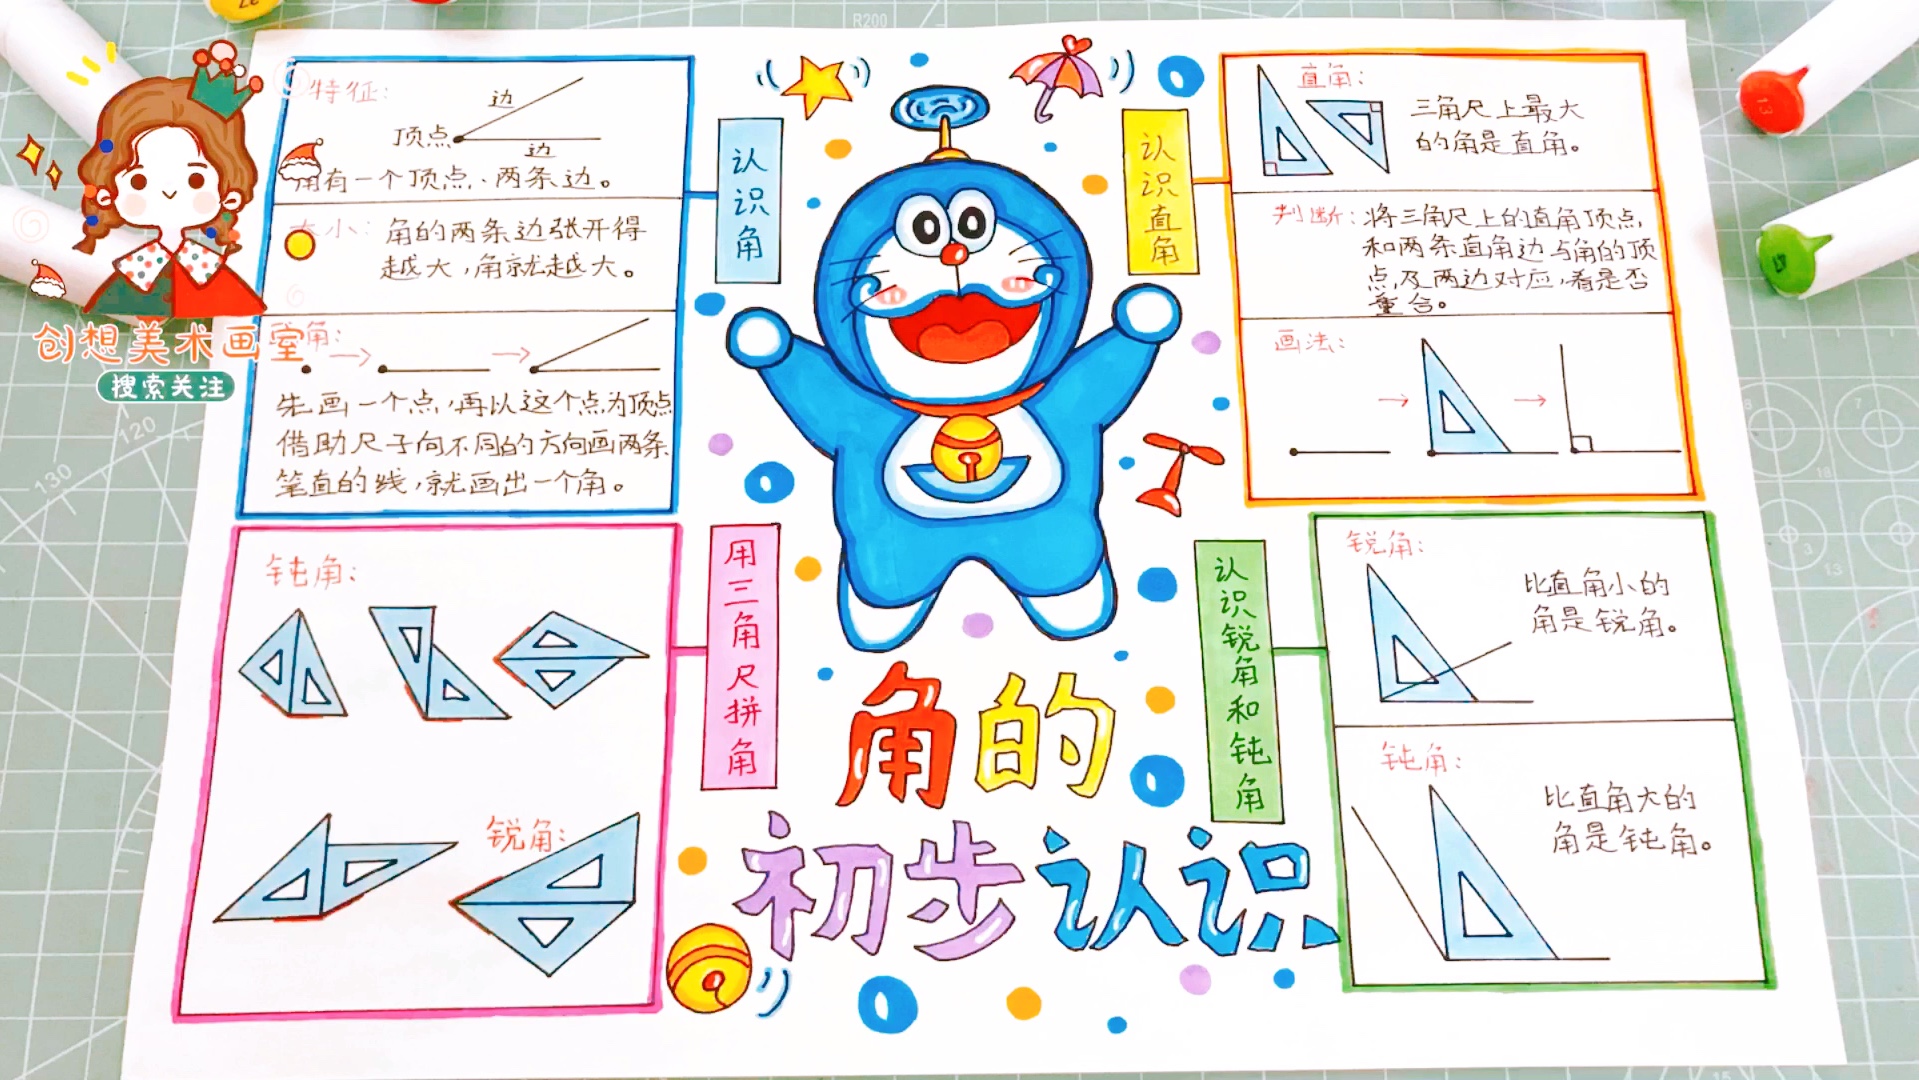 特征:
边
顶点
边
角有一个顶点、两条边。
大小:角的两条边张开得
越大,角就越大。
画角:
先画一个点,再以这个点为顶点
借助尺子向不同的方向画两条
笔直的线,就画出一个角。
认识角
认识直角
直角:
三角尺上最大
的角是直角。
判断:将三角尺上的直角顶点,
和两条直角边与角的顶
点,及两边对应,看是否
重合。
画法:
用三角尺拼角
钝角:
锐角:
认识锐角和钝角
锐角:
比直角小的
角是锐角。
钝角:
比直角大的
角是钝角。
角的
初步认识
创想美术画室
搜索关注
R200
120
130
13